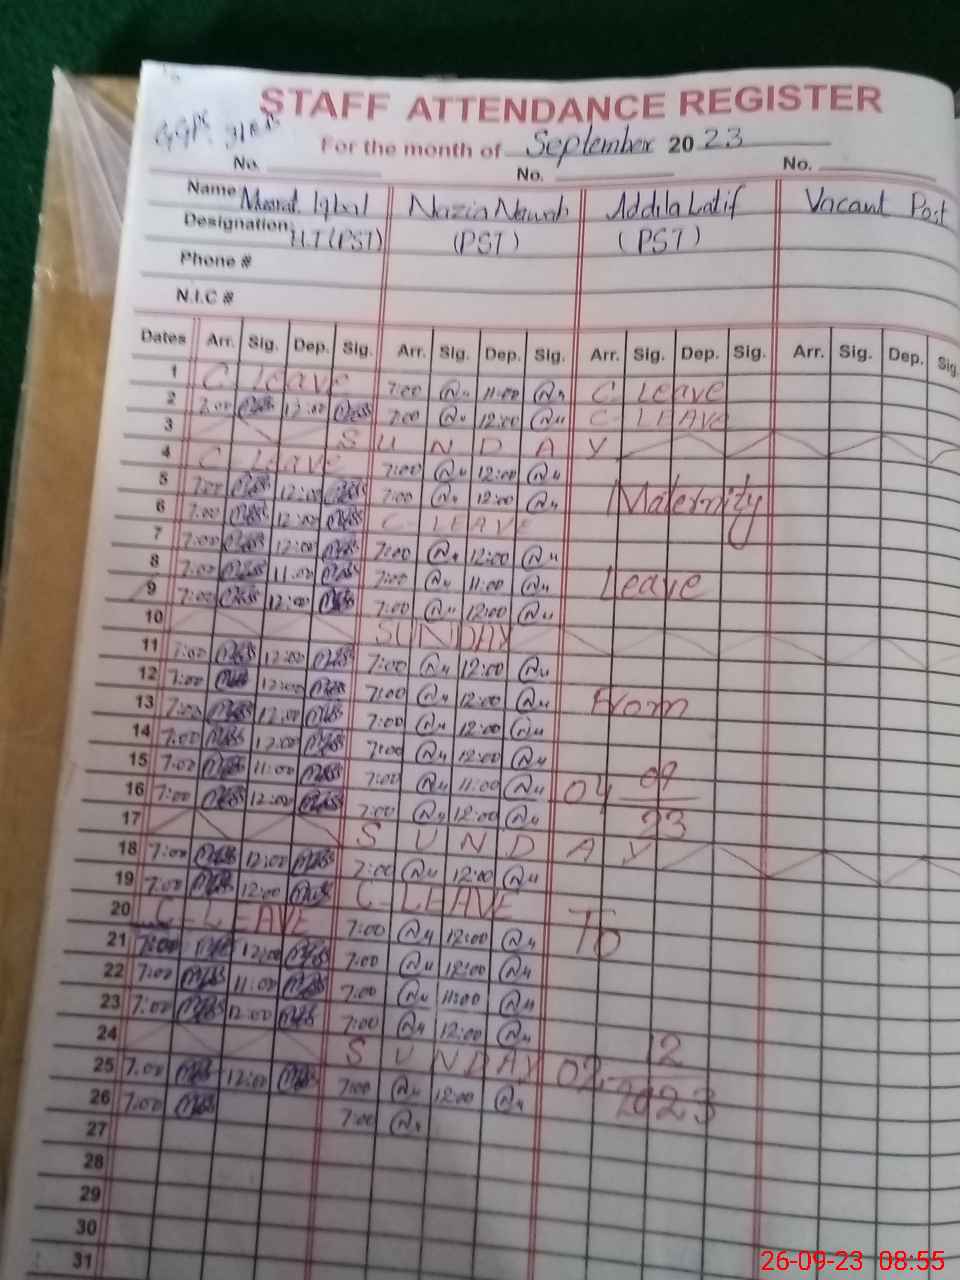 STAFF ATTENDANCE REGISTER
For the month of September 2023
No. No. No.
Name Musrat Iqbal Nazia Nawab Addila Latif Vacant Post
Designation H.T (PST) (PST) (PST)
Phone #
N.I.C #
Dates Arr. Sig. Dep. Sig. Arr. Sig. Dep. Sig. Arr. Sig. Dep. Sig. Arr. Sig. Dep. Sig.
1 C Leave 7:00 11:00 C Leave
2 7:00 12:00 7:00 12:00 C-LEAVE
3 SUNDAY
4 C Leave 7:00 12:00
5 7:00 12:00 7:00 12:00 Maternity
6 7:00 12:00 C-LEAVE
7 7:00 12:00 7:00 12:00
8 7:00 11:00 7:00 11:00 Leave
9 7:00 12:00 7:00 12:00
10 SUNDAY
11 7:00 12:00 7:00 12:00
12 7:00 12:00 7:00 12:00 From
13 7:00 12:00 7:00 12:00
14 7:00 12:00 7:00 12:00
15 7:00 11:00 7:00 11:00 04 09
16 7:00 12:00 7:00 12:00 23
17 SUNDAY
18 7:00 12:00 7:00 12:00
19 7:00 12:00 C-LEAVE
20 C-LEAVE 7:00 12:00 To
21 7:00 12:00 7:00 12:00
22 7:00 11:00 7:00 11:00
23 7:00 12:00 7:00 12:00
24 SUNDAY 12
25 7:00 12:00 7:00 12:00 02- 2023
26 7:00 7:00
27
28
29
30
31
26-09-23 08:55